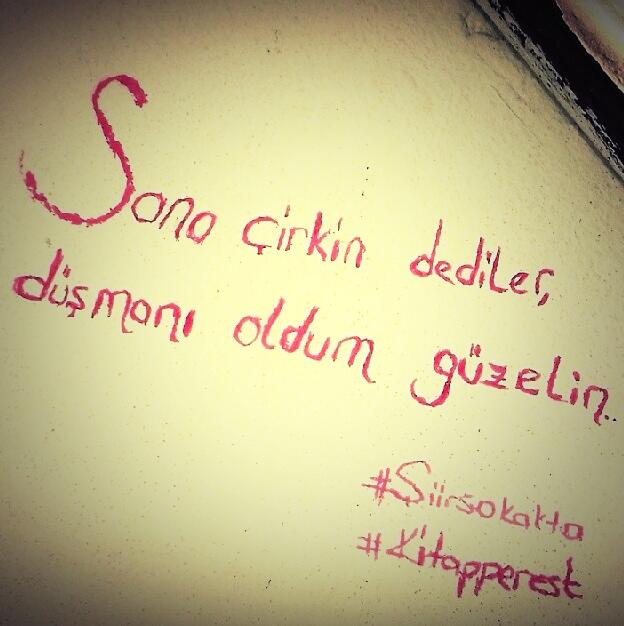 Sana çirkin dediler,
düşmanı oldum güzelin..
#Şiirsokakta
#Kitapperest